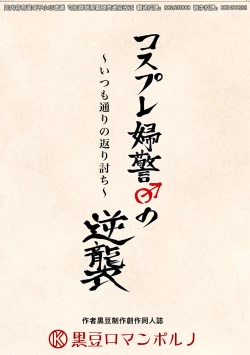 コスプレ婦警♂の
逆襲
～いつも通りの返り討ち～
作者黒豆制作創作同人誌
黒豆ロマンポルノ